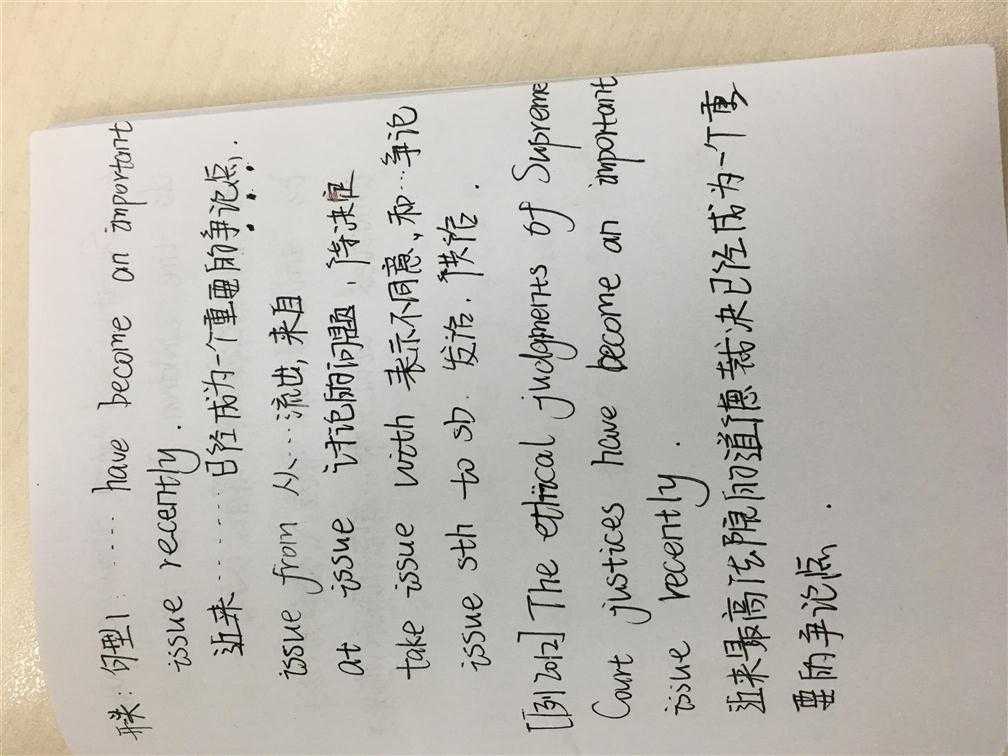 开头：句型1：…… have become an important
issue recently.
近来………已经成为一个重要的争论点.
issue from 从…流出,来自
at issue 讨论的问题，待决定
take issue with 表示不同意,和…争论
issue sth to sb. 发给.供给.
[例2012] The ethical judgments of Supreme
Court justices have become an important
issue recently.
近来最高法院的道德裁决已经成为一个重
要的争论点.